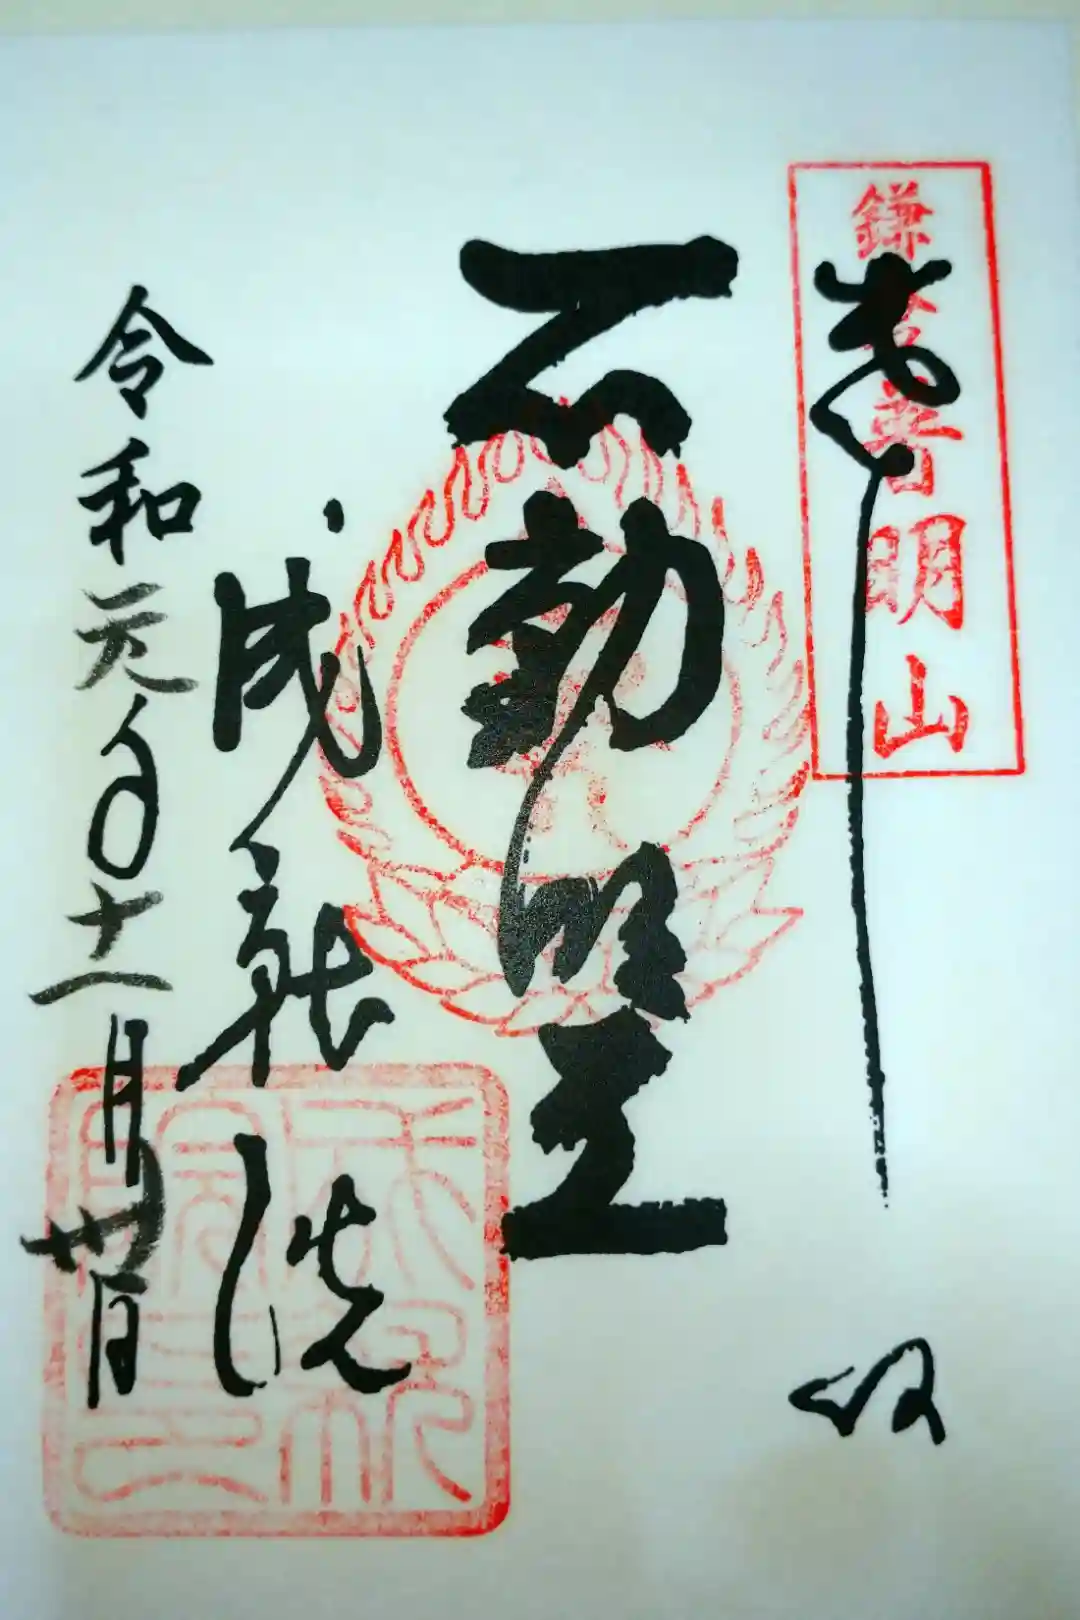 鎌倉普明山
奉
不動明王
成就院
令和元年十一月卅日